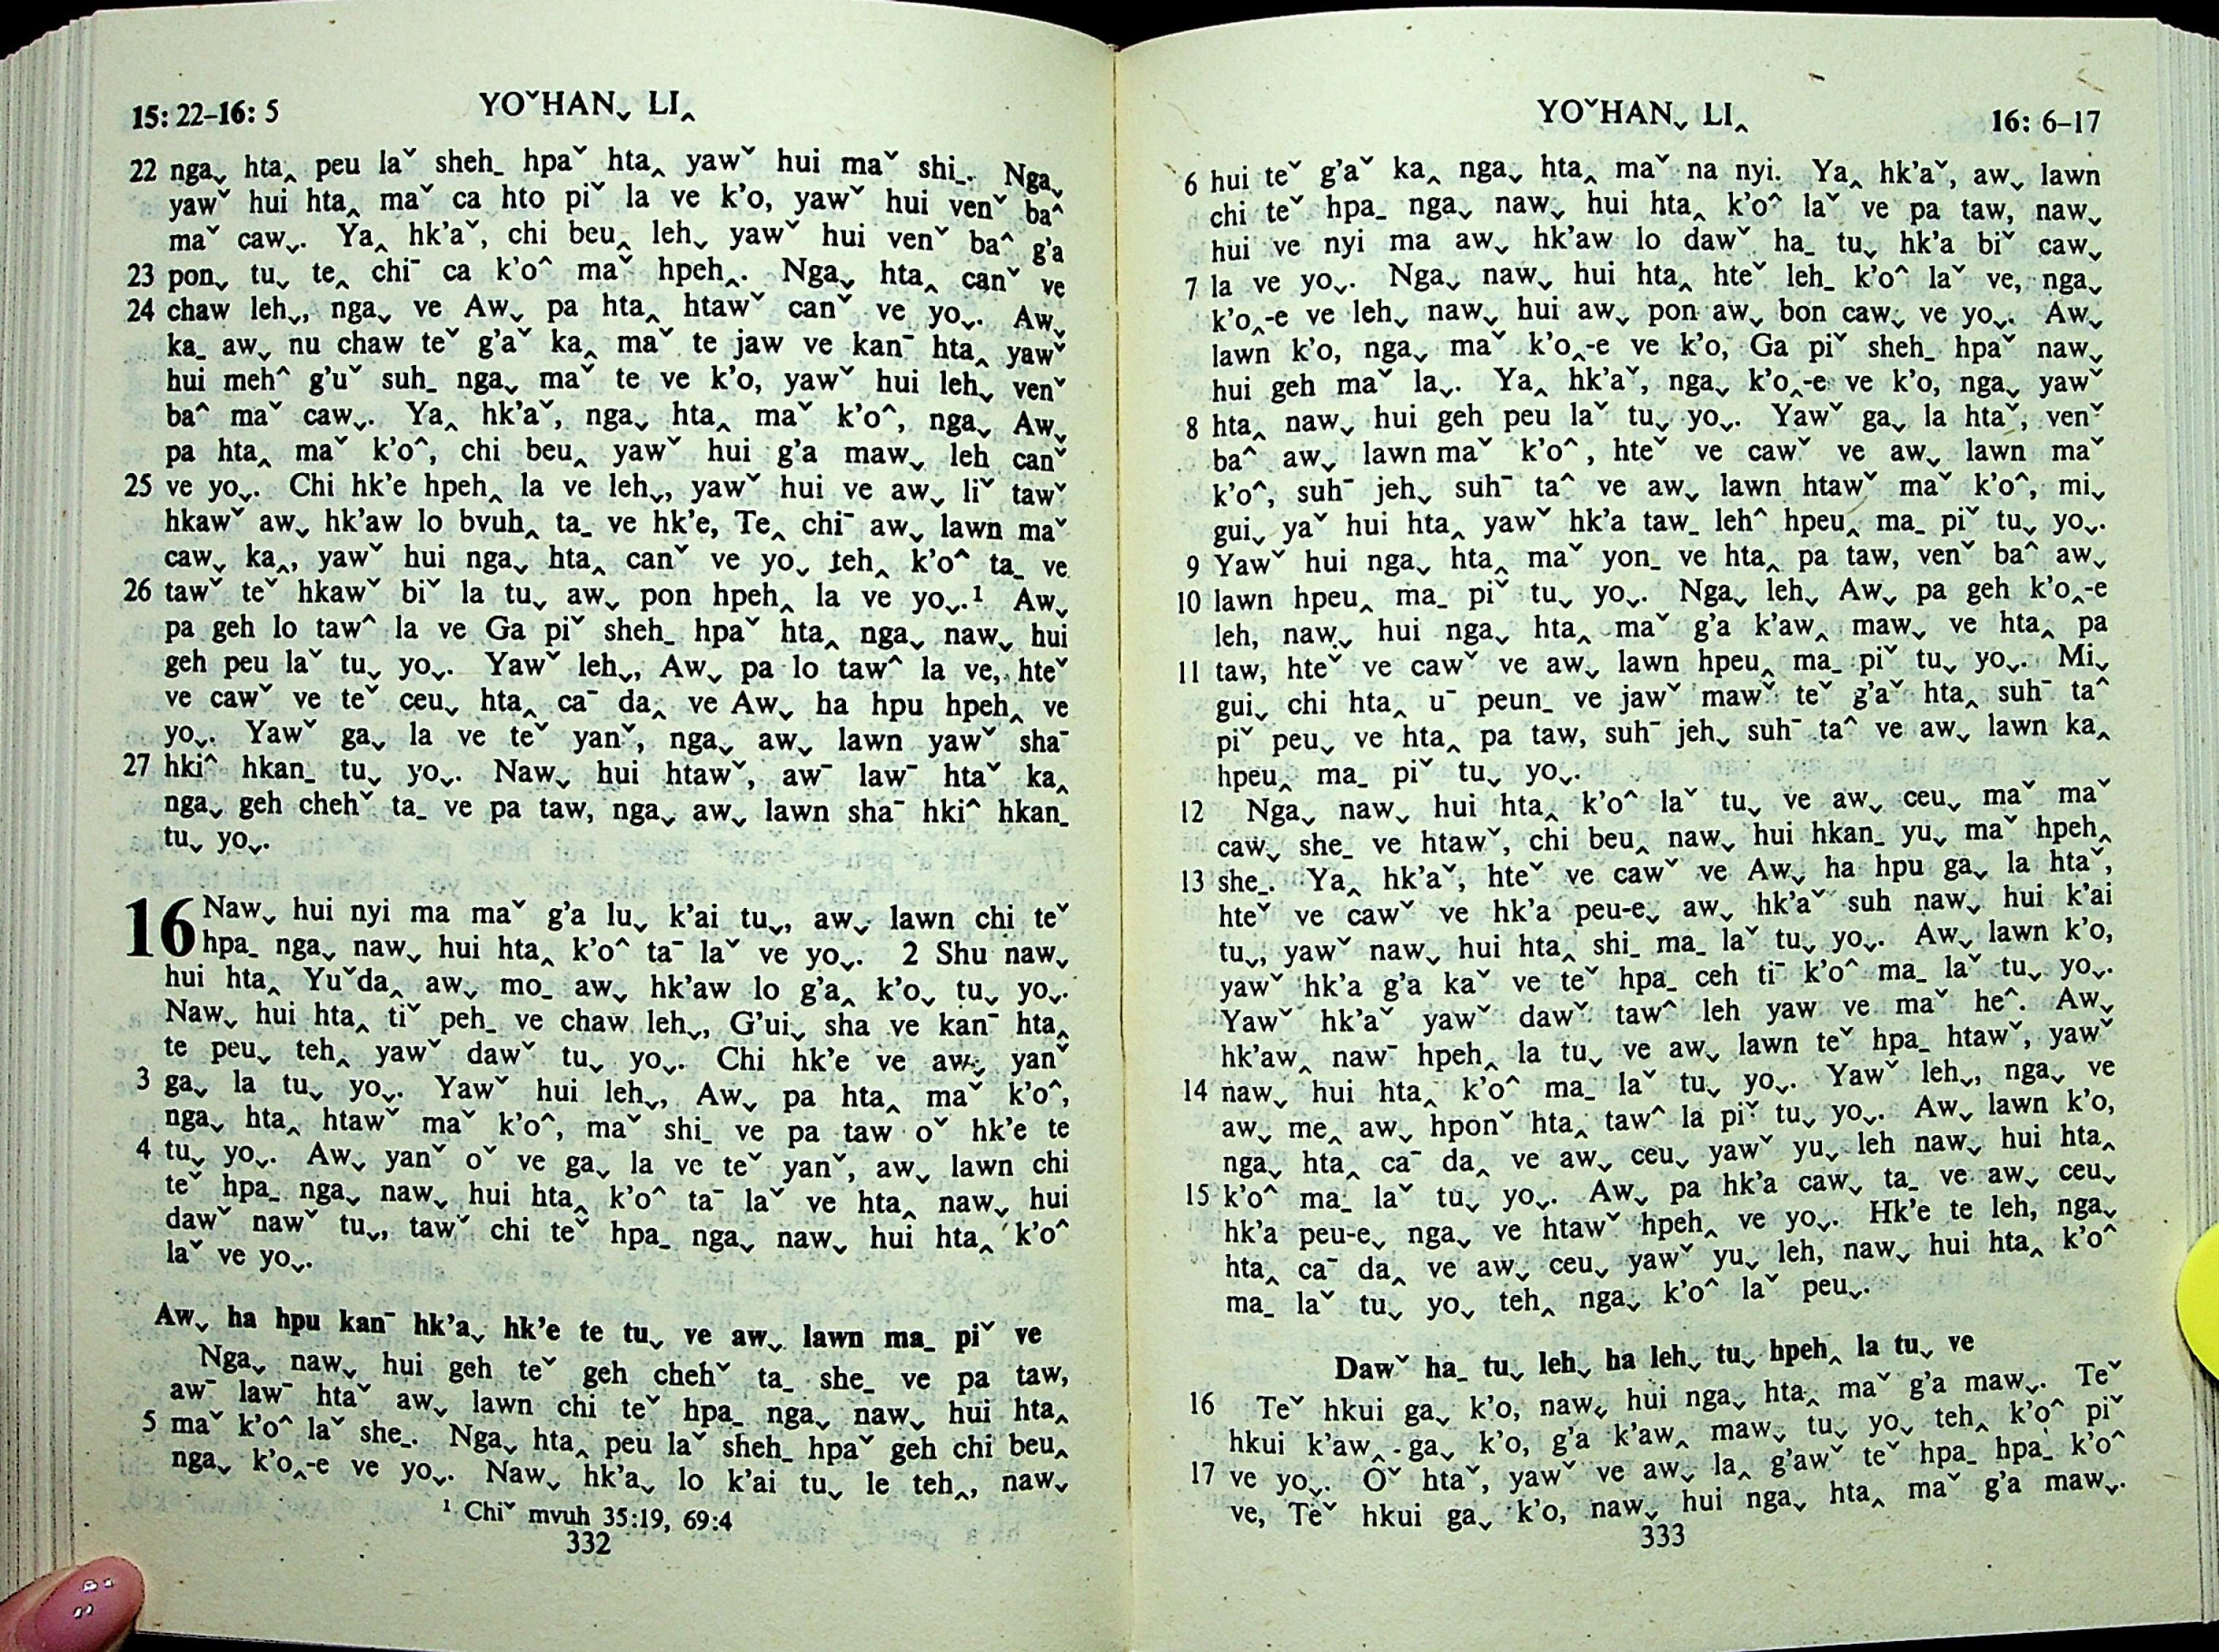 15: 22–16: 5
YOˇHANˬ LI‸
22 ngaˬ hta‸ peu laˇ sheh˗ hpaˇ hta‸ yawˇ hui maˇ shi˗. Ngaˬ
yawˇ hui hta‸ maˇ ca hto piˇ la ve k’o, yawˇ hui venˇ baˆ
maˇ cawˬ. Ya‸ hk’aˇ, chi beu‸ lehˬ yawˇ hui venˇ baˆ g’a
23 ponˬ tuˬ te‸ chiˉ ca k’oˆ maˇ hpeh‸. Ngaˬ hta‸ canˇ ve
24 chaw lehˬ, ngaˬ ve Awˬ pa hta‸ htawˇ canˇ ve yoˬ. Awˬ
ka˗ awˬ nu chaw teˇ g’aˇ ka‸ maˇ te jaw ve kanˉ hta‸ yawˇ
hui mehˆ g’uˇ suh˗ ngaˬ maˇ te ve k’o, yawˇ hui lehˬ venˇ
baˆ maˇ cawˬ. Ya‸ hk’aˇ, ngaˬ hta‸ maˇ k’oˆ, ngaˬ Awˬ
pa hta‸ maˇ k’oˆ, chi beu‸ yawˇ hui g’a mawˬ leh canˇ
25 ve yoˬ. Chi hk’e hpeh‸ la ve lehˬ, yawˇ hui ve awˬ liˇ tawˇ
hkawˇ awˬ hk’aw lo bvuh‸ ta˗ ve hk’e, Te‸ chiˉ awˬ lawn maˇ
cawˬ ka‸, yawˇ hui ngaˬ hta‸ canˇ ve yoˬ teh‸ k’oˆ ta˗ ve
26 tawˇ teˇ hkawˇ biˇ la tuˬ awˬ pon hpeh‸ la ve yoˬ.¹ Awˬ
pa geh lo tawˆ la ve Ga piˇ sheh˗ hpaˇ hta‸ ngaˬ nawˬ hui
geh peu laˇ tuˬ yoˬ. Yawˇ lehˬ, Awˬ pa lo tawˆ la ve, hteˇ
ve cawˇ ve teˇ ceuˬ hta‸ caˉ da‸ ve Awˬ ha hpu hpeh‸ ve
yoˬ. Yawˇ gaˬ la ve teˇ yanˇ, ngaˬ awˬ lawn yawˇ shaˉ
27 hkiˆ hkan˗ tuˬ yoˬ. Nawˬ hui htawˇ, awˉ lawˉ htaˇ ka‸
ngaˬ geh chehˇ ta˗ ve pa taw, ngaˬ awˬ lawn shaˉ hkiˆ hkan˗
tuˬ yoˬ.
16 Nawˬ hui nyi ma maˇ g’a luˬ k’ai tuˬ, awˬ lawn chi teˇ
hpa˗ ngaˬ nawˬ hui hta‸ k’oˆ taˉ laˇ ve yoˬ. 2 Shu nawˬ
hui hta‸ Yuˇda‸ awˬ mo˗ awˬ hk’aw lo g’a‸ k’oˬ tuˬ yoˬ.
Nawˬ hui hta‸ tiˇ peh˗ ve chaw lehˬ, G’uiˬ sha ve kanˉ hta‸
te peuˬ teh‸ yawˇ dawˇ tuˬ yoˬ. Chi hk’e ve awˬ yanˇ
3 gaˬ la tuˬ yoˬ. Yawˇ hui lehˬ, Awˬ pa hta‸ maˇ k’oˆ,
ngaˬ hta‸ htawˇ maˇ k’oˆ, maˇ shi˗ ve pa taw oˇ hk’e te
4 tuˬ yoˬ. Awˬ yanˇ oˇ ve gaˬ la ve teˇ yanˇ, awˬ lawn chi
teˇ hpa˗ ngaˬ nawˬ hui hta‸ k’oˆ taˉ laˇ ve hta‸ nawˬ hui
dawˇ nawˇ tuˬ, tawˇ chi teˇ hpa˗ ngaˬ nawˬ hui hta‸ k’oˆ
laˇ ve yoˬ.
Awˬ ha hpu kanˉ hk’aˬ hk’e te tuˬ ve awˬ lawn ma˗ piˇ ve
Ngaˬ nawˬ hui geh teˇ geh chehˇ ta˗ she˗ ve pa taw,
awˉ lawˉ htaˇ awˬ lawn chi teˇ hpa˗ ngaˬ nawˬ hui hta‸
5 maˇ k’oˆ laˇ she˗. Ngaˬ hta‸ peu laˇ sheh˗ hpaˇ geh chi beu‸
ngaˬ k’o‸-e ve yoˬ. Nawˬ hk’aˬ lo k’ai tuˬ le teh‸, nawˬ
¹ Chiˇ mvuh 35:19, 69:4
332
YOˇHANˬ LI‸
16: 6–17
6 hui teˇ g’aˇ ka‸ ngaˬ hta‸ maˇ na nyi. Ya‸ hk’aˇ, awˬ lawn
chi teˇ hpa˗ ngaˬ nawˬ hui hta‸ k’oˆ laˇ ve pa taw, nawˬ
hui ve nyi ma awˬ hk’aw lo dawˇ ha˗ tuˬ hk’a biˇ cawˬ
7 la ve yoˬ. Ngaˬ nawˬ hui hta‸ hteˇ leh˗ k’oˆ laˇ ve, ngaˬ
k’o‸-e ve lehˬ nawˬ hui awˬ pon awˬ bon cawˬ ve yoˬ. Awˬ
lawn k’o, ngaˬ maˇ k’o‸-e ve k’o, Ga piˇ sheh˗ hpaˇ nawˬ
hui geh maˇ laˬ. Ya‸ hk’aˇ, ngaˬ k’o‸-e ve k’o, ngaˬ yawˇ
8 hta‸ nawˬ hui geh peu laˇ tuˬ yoˬ. Yawˇ gaˬ la htaˇ, venˇ
baˆ awˬ lawn maˇ k’oˆ, hteˇ ve cawˇ ve awˬ lawn maˇ
k’oˆ, suhˉ jehˬ suhˉ taˆ ve awˬ lawn htawˇ maˇ k’oˆ, miˬ
guiˬ yaˇ hui hta‸ yawˇ hk’a taw˗ lehˆ hpeu‸ ma˗ piˇ tuˬ yoˬ.
9 Yawˇ hui ngaˬ hta‸ maˇ yon˗ ve hta‸ pa taw, venˇ baˆ awˬ
10 lawn hpeu‸ ma˗ piˇ tuˬ yoˬ. Ngaˬ lehˬ Awˬ pa geh k’o‸-e
leh, nawˬ hui ngaˬ hta‸ maˇ g’a k’aw‸ mawˬ ve hta‸ pa
11 taw, hteˇ ve cawˇ ve awˬ lawn hpeu‸ ma˗ piˇ tuˬ yoˬ. Miˬ
guiˬ chi hta‸ uˉ peun˗ ve jawˇ mawˇ teˇ g’aˇ hta‸ suhˉ taˆ
piˇ peuˬ ve hta‸ pa taw, suhˉ jehˬ suhˉ taˆ ve awˬ lawn ka‸
hpeu‸ ma˗ piˇ tuˬ yoˬ.
12 Ngaˬ nawˬ hui hta‸ k’oˆ laˇ tuˬ ve awˬ ceuˬ maˇ maˇ
cawˬ she˗ ve htawˇ, chi beu‸ nawˬ hui hkan˗ yuˬ maˇ hpeh‸
13 she˗. Ya‸ hk’aˇ, hteˇ ve cawˇ ve Awˬ ha hpu gaˬ la htaˇ,
hteˇ ve cawˇ ve hk’a peu-eˬ awˬ hk’aˇ suh nawˬ hui k’ai
tuˬ, yawˇ nawˬ hui hta‸ shi˗ ma˗ laˇ tuˬ yoˬ. Awˬ lawn k’o,
yawˇ hk’a g’a kaˇ ve teˇ hpa˗ ceh tiˉ k’oˆ ma˗ laˇ tuˬ yoˬ.
Yawˇ hk’aˇ yawˇ dawˇ tawˆ leh yaw ve maˇ heˆ. Awˬ
hk’aw‸ nawˉ hpeh‸ la tuˬ ve awˬ lawn teˇ hpa˗ htawˇ, yawˇ
14 nawˬ hui hta‸ k’oˆ ma˗ laˇ tuˬ yoˬ. Yawˇ lehˬ, ngaˬ ve
awˬ me‸ awˬ hponˇ hta‸ tawˆ la piˇ tuˬ yoˬ. Awˬ lawn k’o,
ngaˬ hta‸ caˉ da‸ ve awˬ ceuˬ yawˇ yuˬ leh nawˬ hui hta‸
15 k’oˆ ma˗ laˇ tuˬ yoˬ. Awˬ pa hk’a cawˬ ta˗ ve awˬ ceuˬ
hk’a peu-eˬ ngaˬ ve htawˇ hpeh‸ ve yoˬ. Hk’e te leh, ngaˬ
hta‸ caˉ da‸ ve awˬ ceuˬ yawˇ yuˬ leh, nawˬ hui hta‸ k’oˆ
ma˗ laˇ tuˬ yoˬ teh‸ ngaˬ k’oˆ laˇ peuˬ.
Dawˇ ha˗ tuˬ lehˬ ha lehˬ tuˬ hpeh‸ la tuˬ ve
16 Teˇ hkui gaˬ k’o, nawˬ hui ngaˬ hta‸ maˇ g’a mawˬ. Teˇ
hkui k’aw‸ gaˬ k’o, g’a k’aw‸ mawˬ tuˬ yoˬ teh‸ k’oˆ piˇ
17 ve yoˬ. Oˇ htaˇ, yawˇ ve awˬ la‸ g’awˇ teˇ hpa˗ hpa˗ k’oˆ
ve, Teˇ hkui gaˬ k’o, nawˬ hui ngaˬ hta‸ maˇ g’a mawˬ.
333